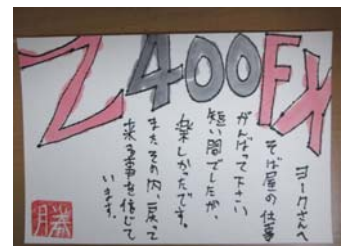 Z400FX
ヨークさんへ
そば屋の仕事
がんばって下さい
短い間でしたが、
楽しかったです。
またその内、戻って
来る事を信じて
います。
勝月